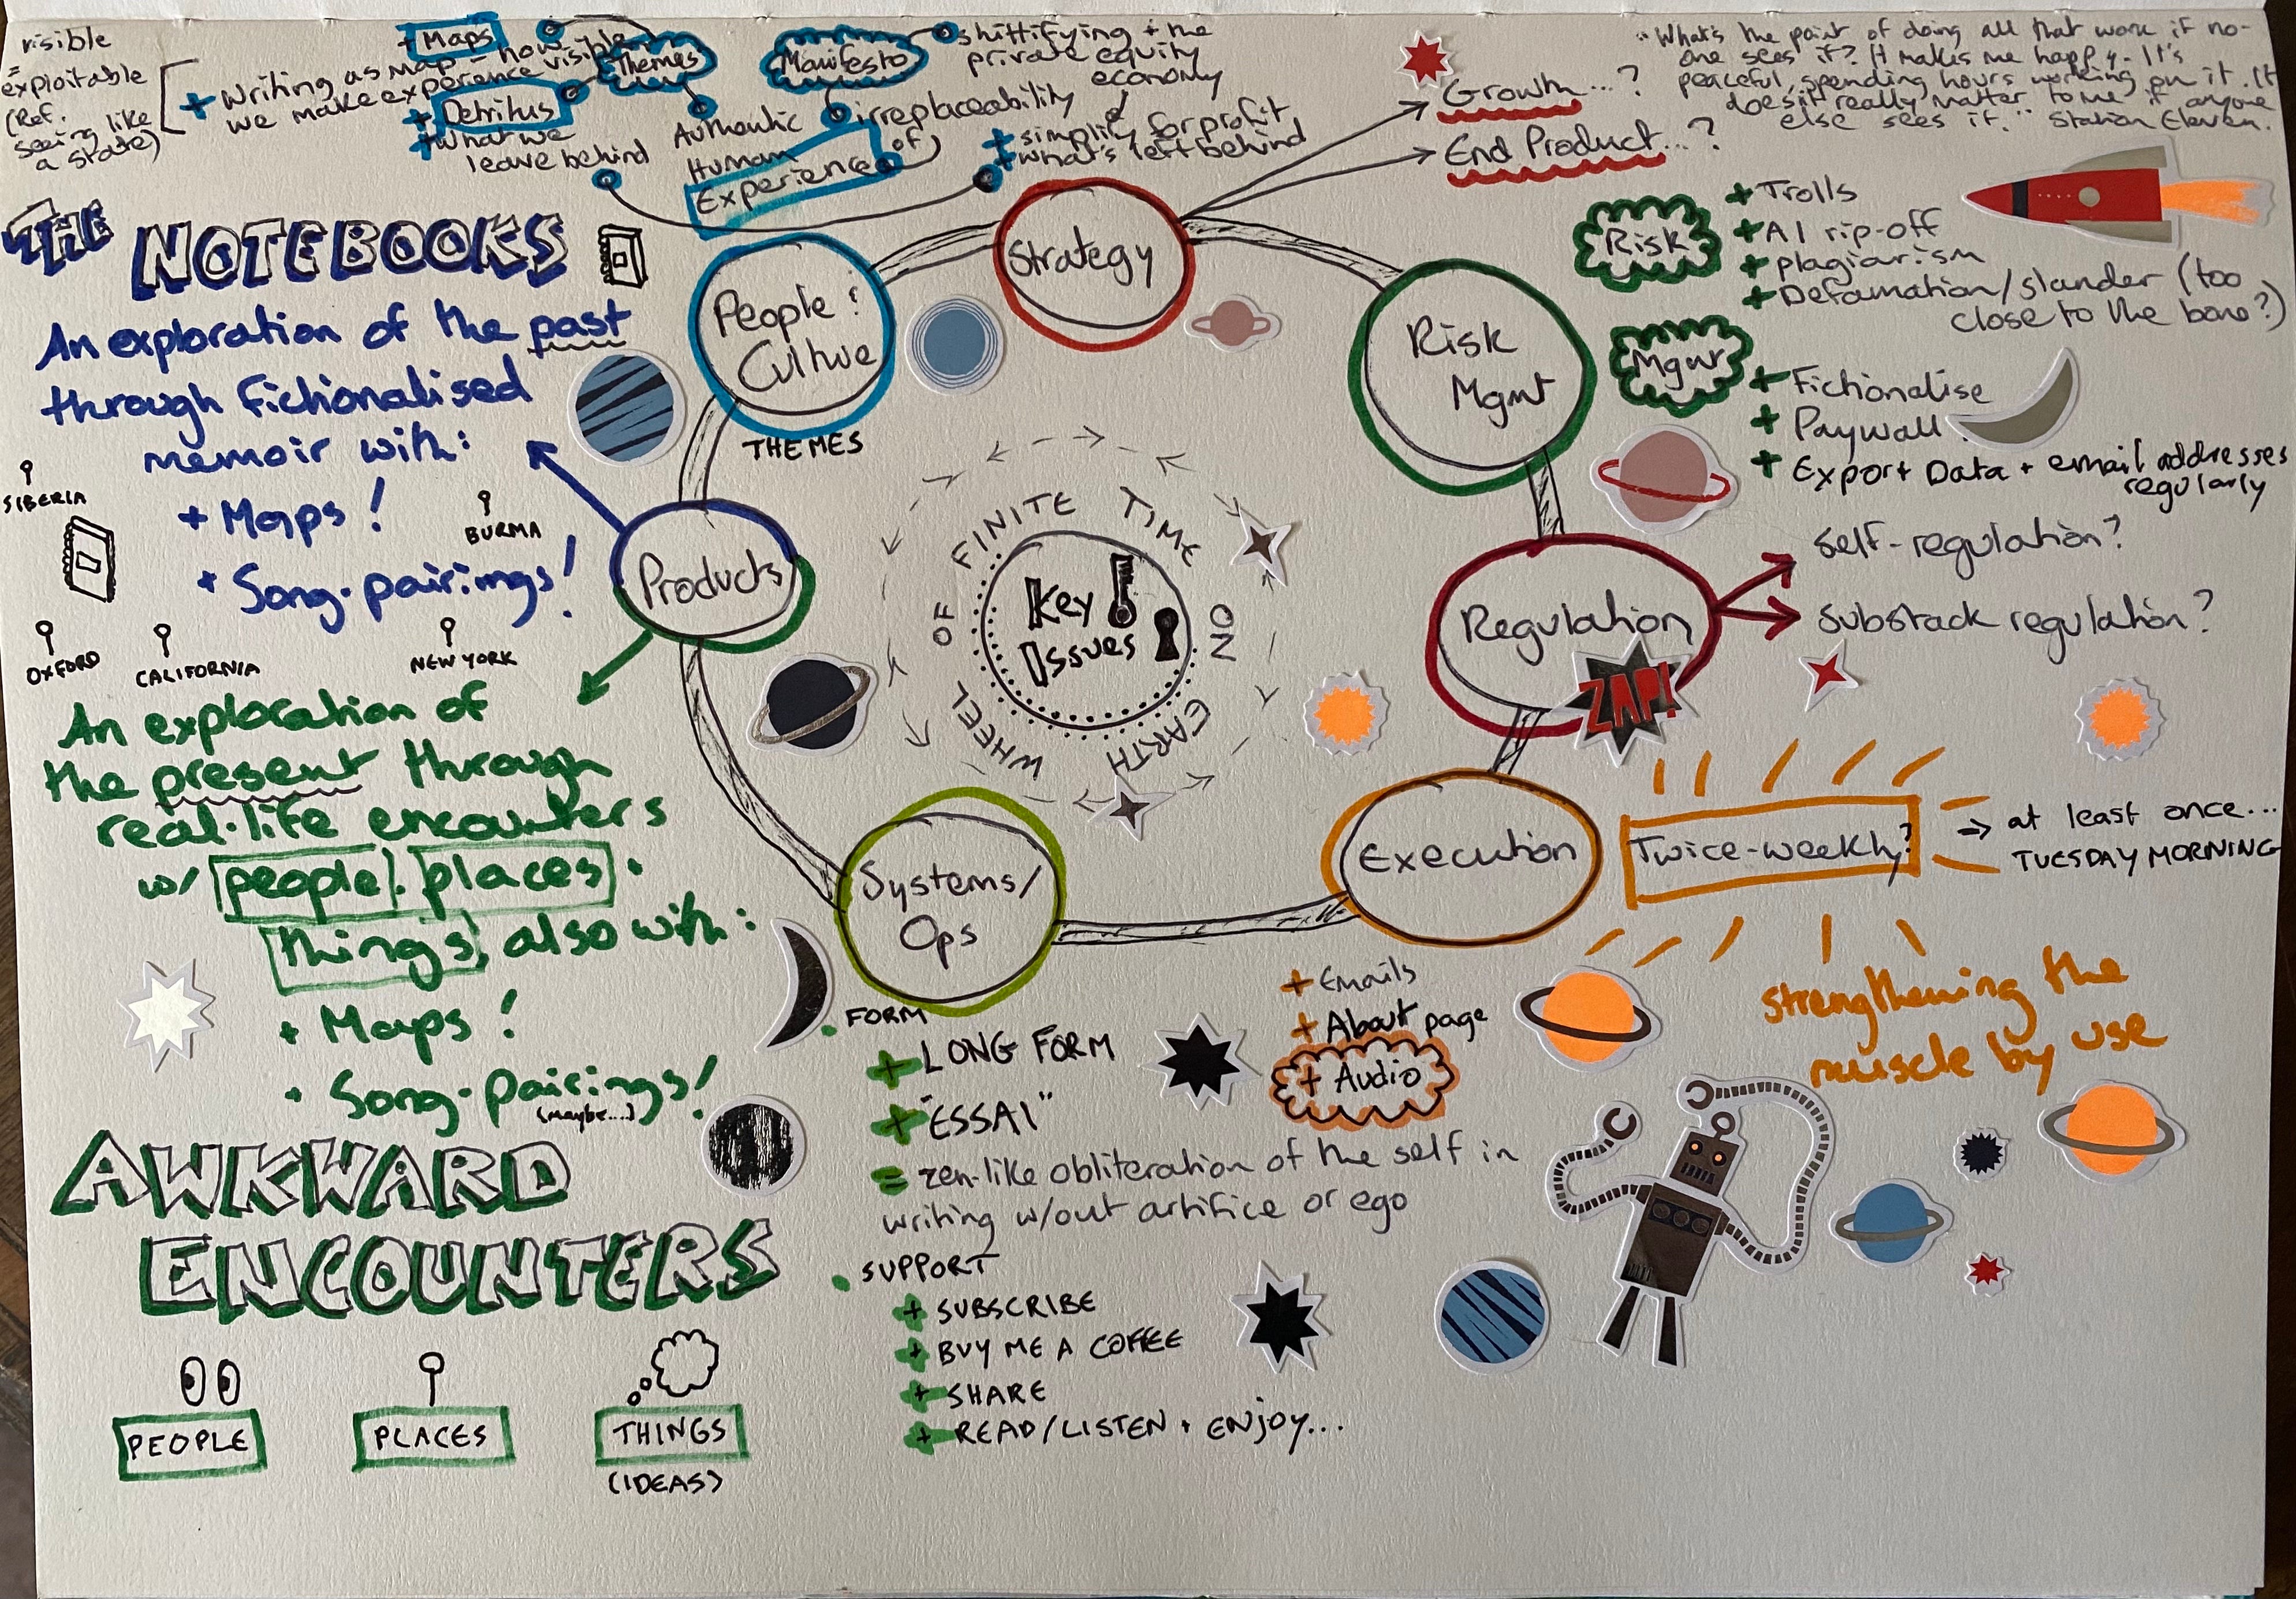 visible
=
exploitable
(Ref.
seeing like
a state)
+ Writing as map - how
we make experience visible
+ Maps
+ Detritus
+ what we
leave behind
Themes
Authentic
Human
Experience
Manifesto
shittifying + the
private equity
economy
irreplaceability
(of)
+ simplify for profit
+ what's left behind
Growth...?
End Product...?
"What's the point of doing all that work if no-
one sees it? It makes me happy. It's
peaceful, spending hours working on it. It
doesn't really matter to me if anyone
else sees it." Station Eleven.
THE
NOTEBOOKS
An exploration of the past
through fictionalised
memoir with:
+ Maps!
+ Song-pairings!
SIBERIA
BURMA
OXFORD
CALIFORNIA
NEW YORK
An exploration of
the present through
real-life encounters
w/ people. places.
things, also with:
+ Maps!
+ Song-pairings!
(maybe...)
AWKWARD
ENCOUNTERS
PEOPLE
PLACES
THINGS
(IDEAS)
Strategy
People &
Culture
THEMES
Products
Systems/
Ops
Execution
Regulation
ZAP!
Risk
Mgmt
Key
Issues
WHEEL OF FINITE TIME ON EARTH
Risk
+ Trolls
+ AI rip-off
+ plagiarism
+ Defamation/slander (too
close to the bone?)
Mgmt
+ Fictionalise
+ Paywall?
+ Export Data + email addresses
regularly
Self-regulation?
Substack regulation?
Twice-weekly?
⇒ at least once...
TUESDAY MORNING
strengthening the
muscle by use
+ Emails
+ About page
+ Audio
• FORM
+ LONG FORM
+ "ESSAI"
= zen-like obliteration of the self in
writing w/out artifice or ego
• SUPPORT
+ SUBSCRIBE
+ BUY ME A COFFEE
+ SHARE
+ READ/LISTEN + ENJOY...